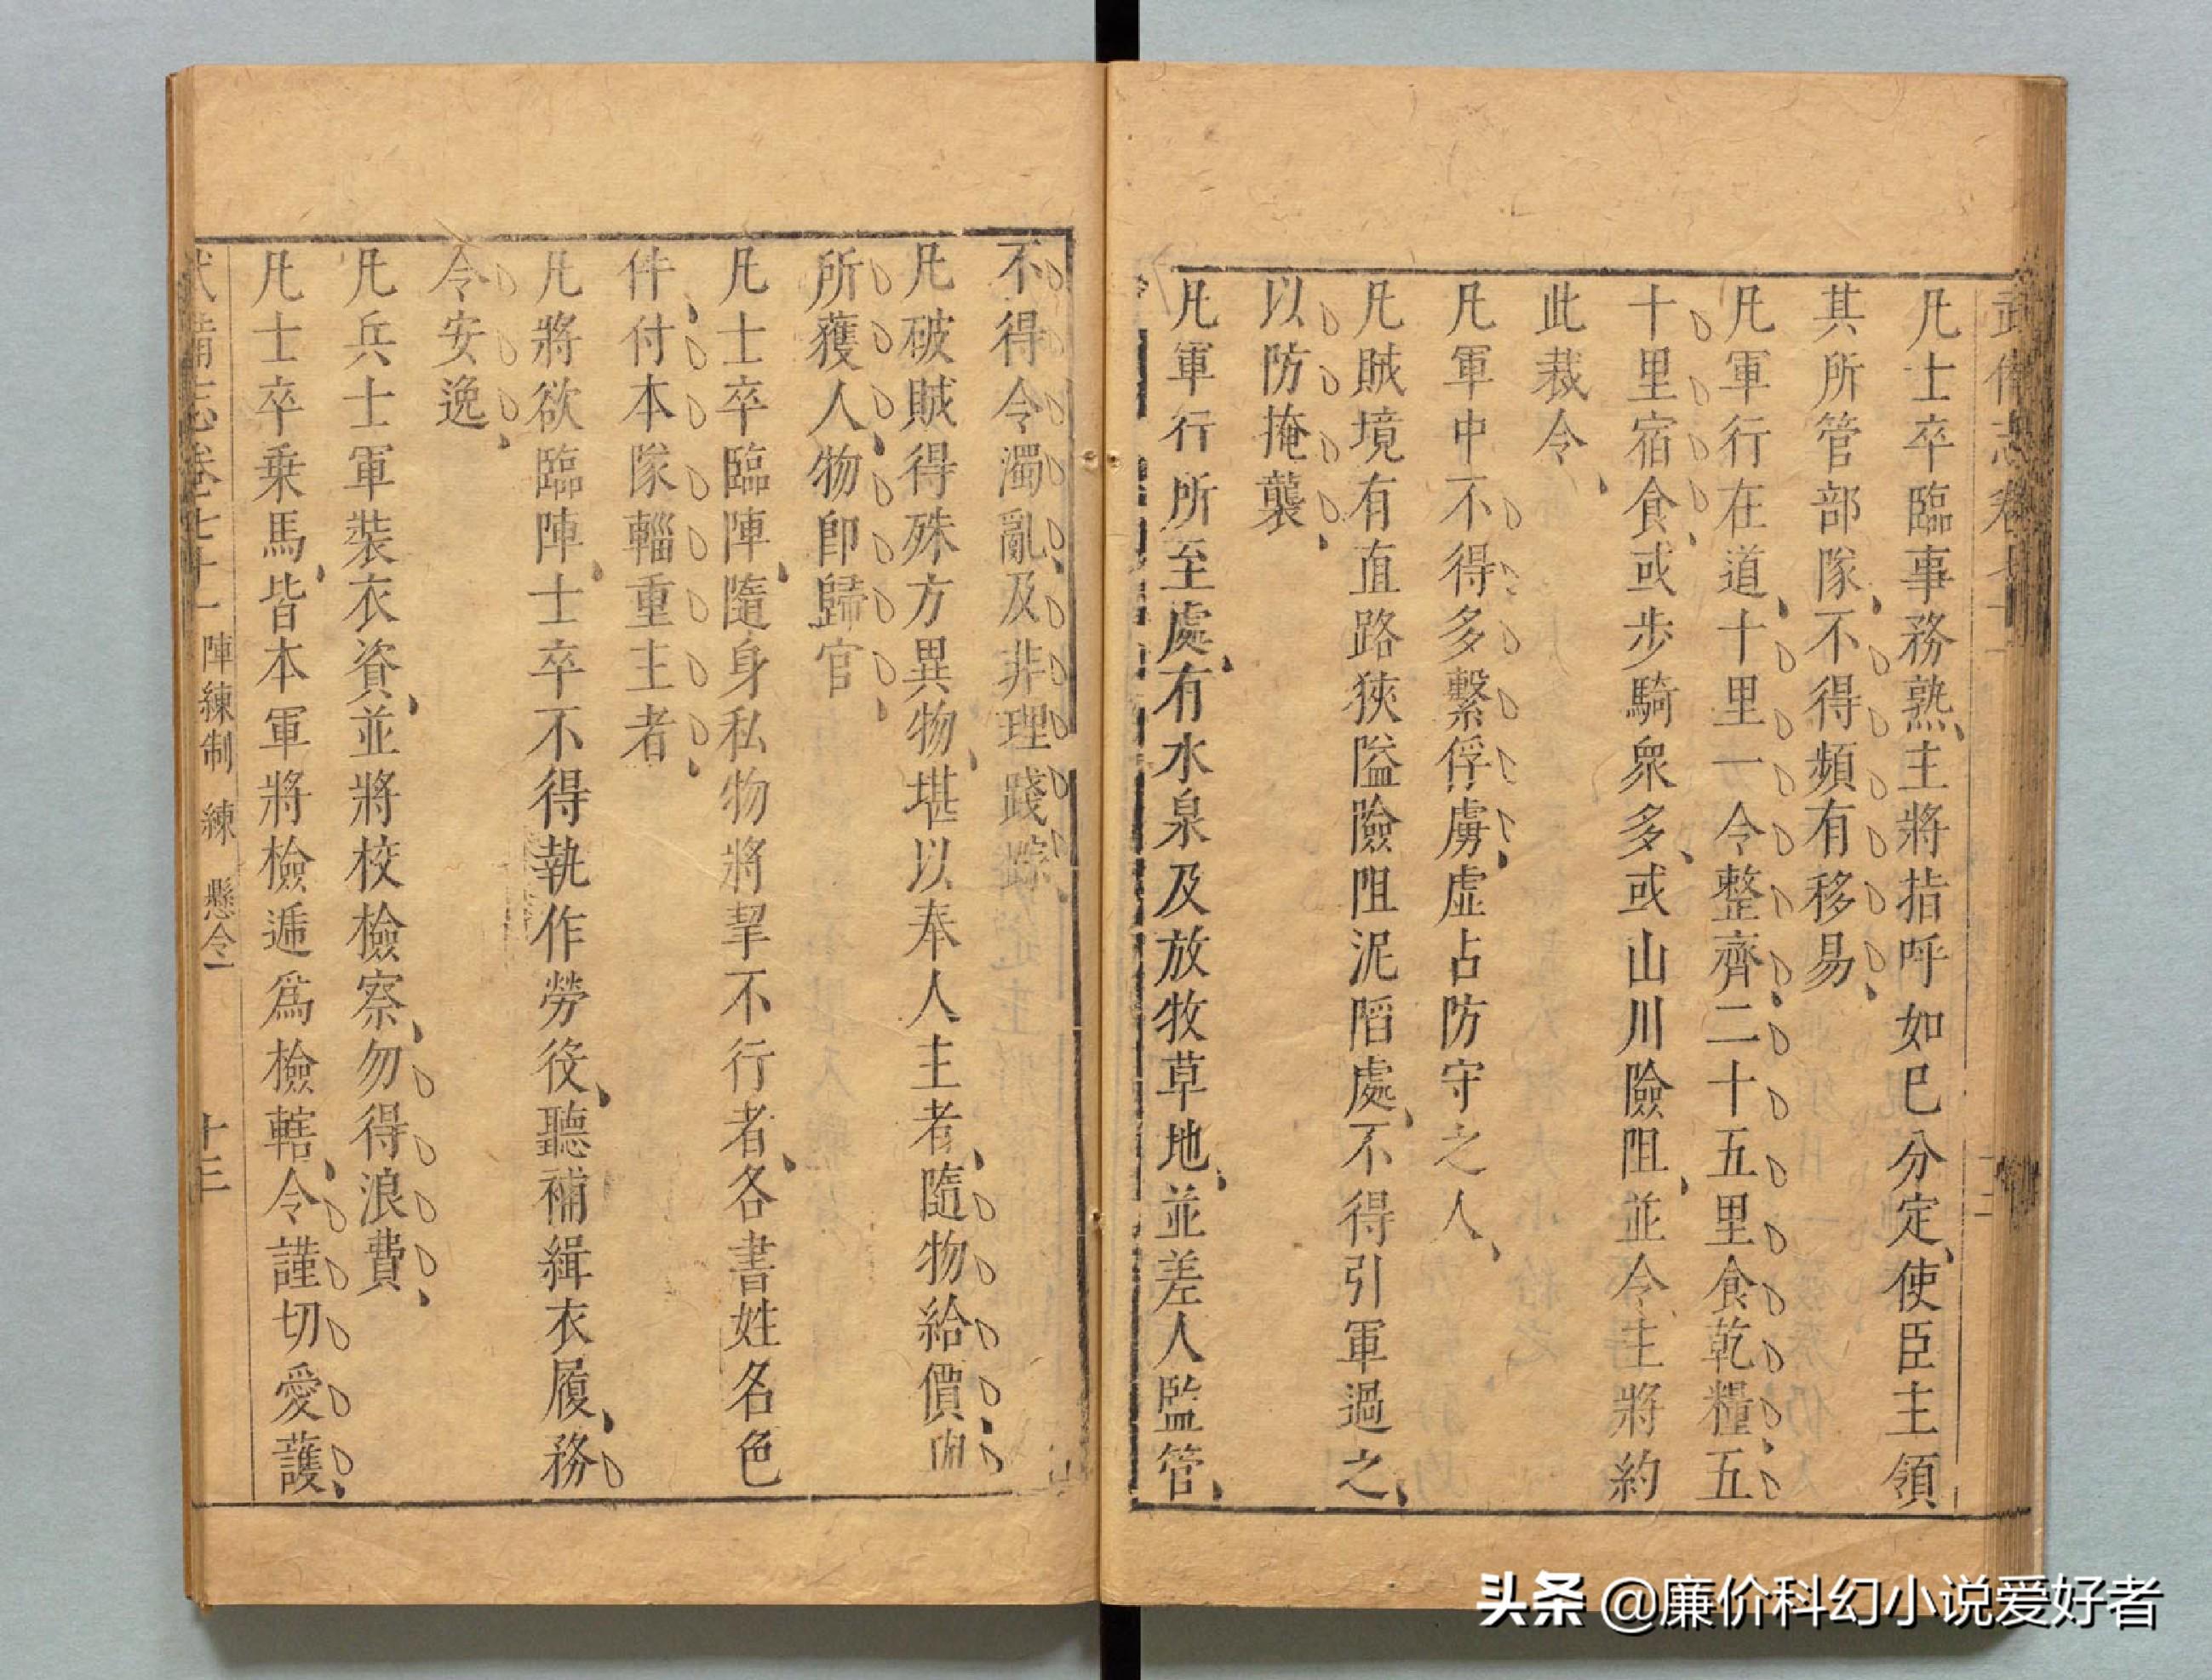 凡士卒臨事務熟主將指呼如已分定使臣主領
其所管部隊不得頻有移易
凡軍行在道十里一令整齊二十五里食乾糧五
十里宿食或步騎衆多或山川險阻並令主將約
此裁令
凡軍中不得多繫俘虜虛占防守之人
凡賊境有直路狹隘險阻泥陷處不得引軍過之
以防掩襲
凡軍行所至處有水泉及放牧草地並差人監管
不得令濁亂及非理踐
凡破賊得殊方異物堪以奉人主者隨物給價
所獲人物即歸官
凡士卒臨陣隨身私物將挈不行者各書姓名色
件付本隊輜重主者
凡將欲臨陣士卒不得執作勞役聽補緝衣履務
令安逸
凡兵士軍裝衣資並將校檢察勿得浪費
凡士卒乗馬皆本軍將檢遞爲檢轄令謹切愛護
武備志卷七十一 陣練制 練 懸令一 十二
头条 @廉价科幻小说爱好者